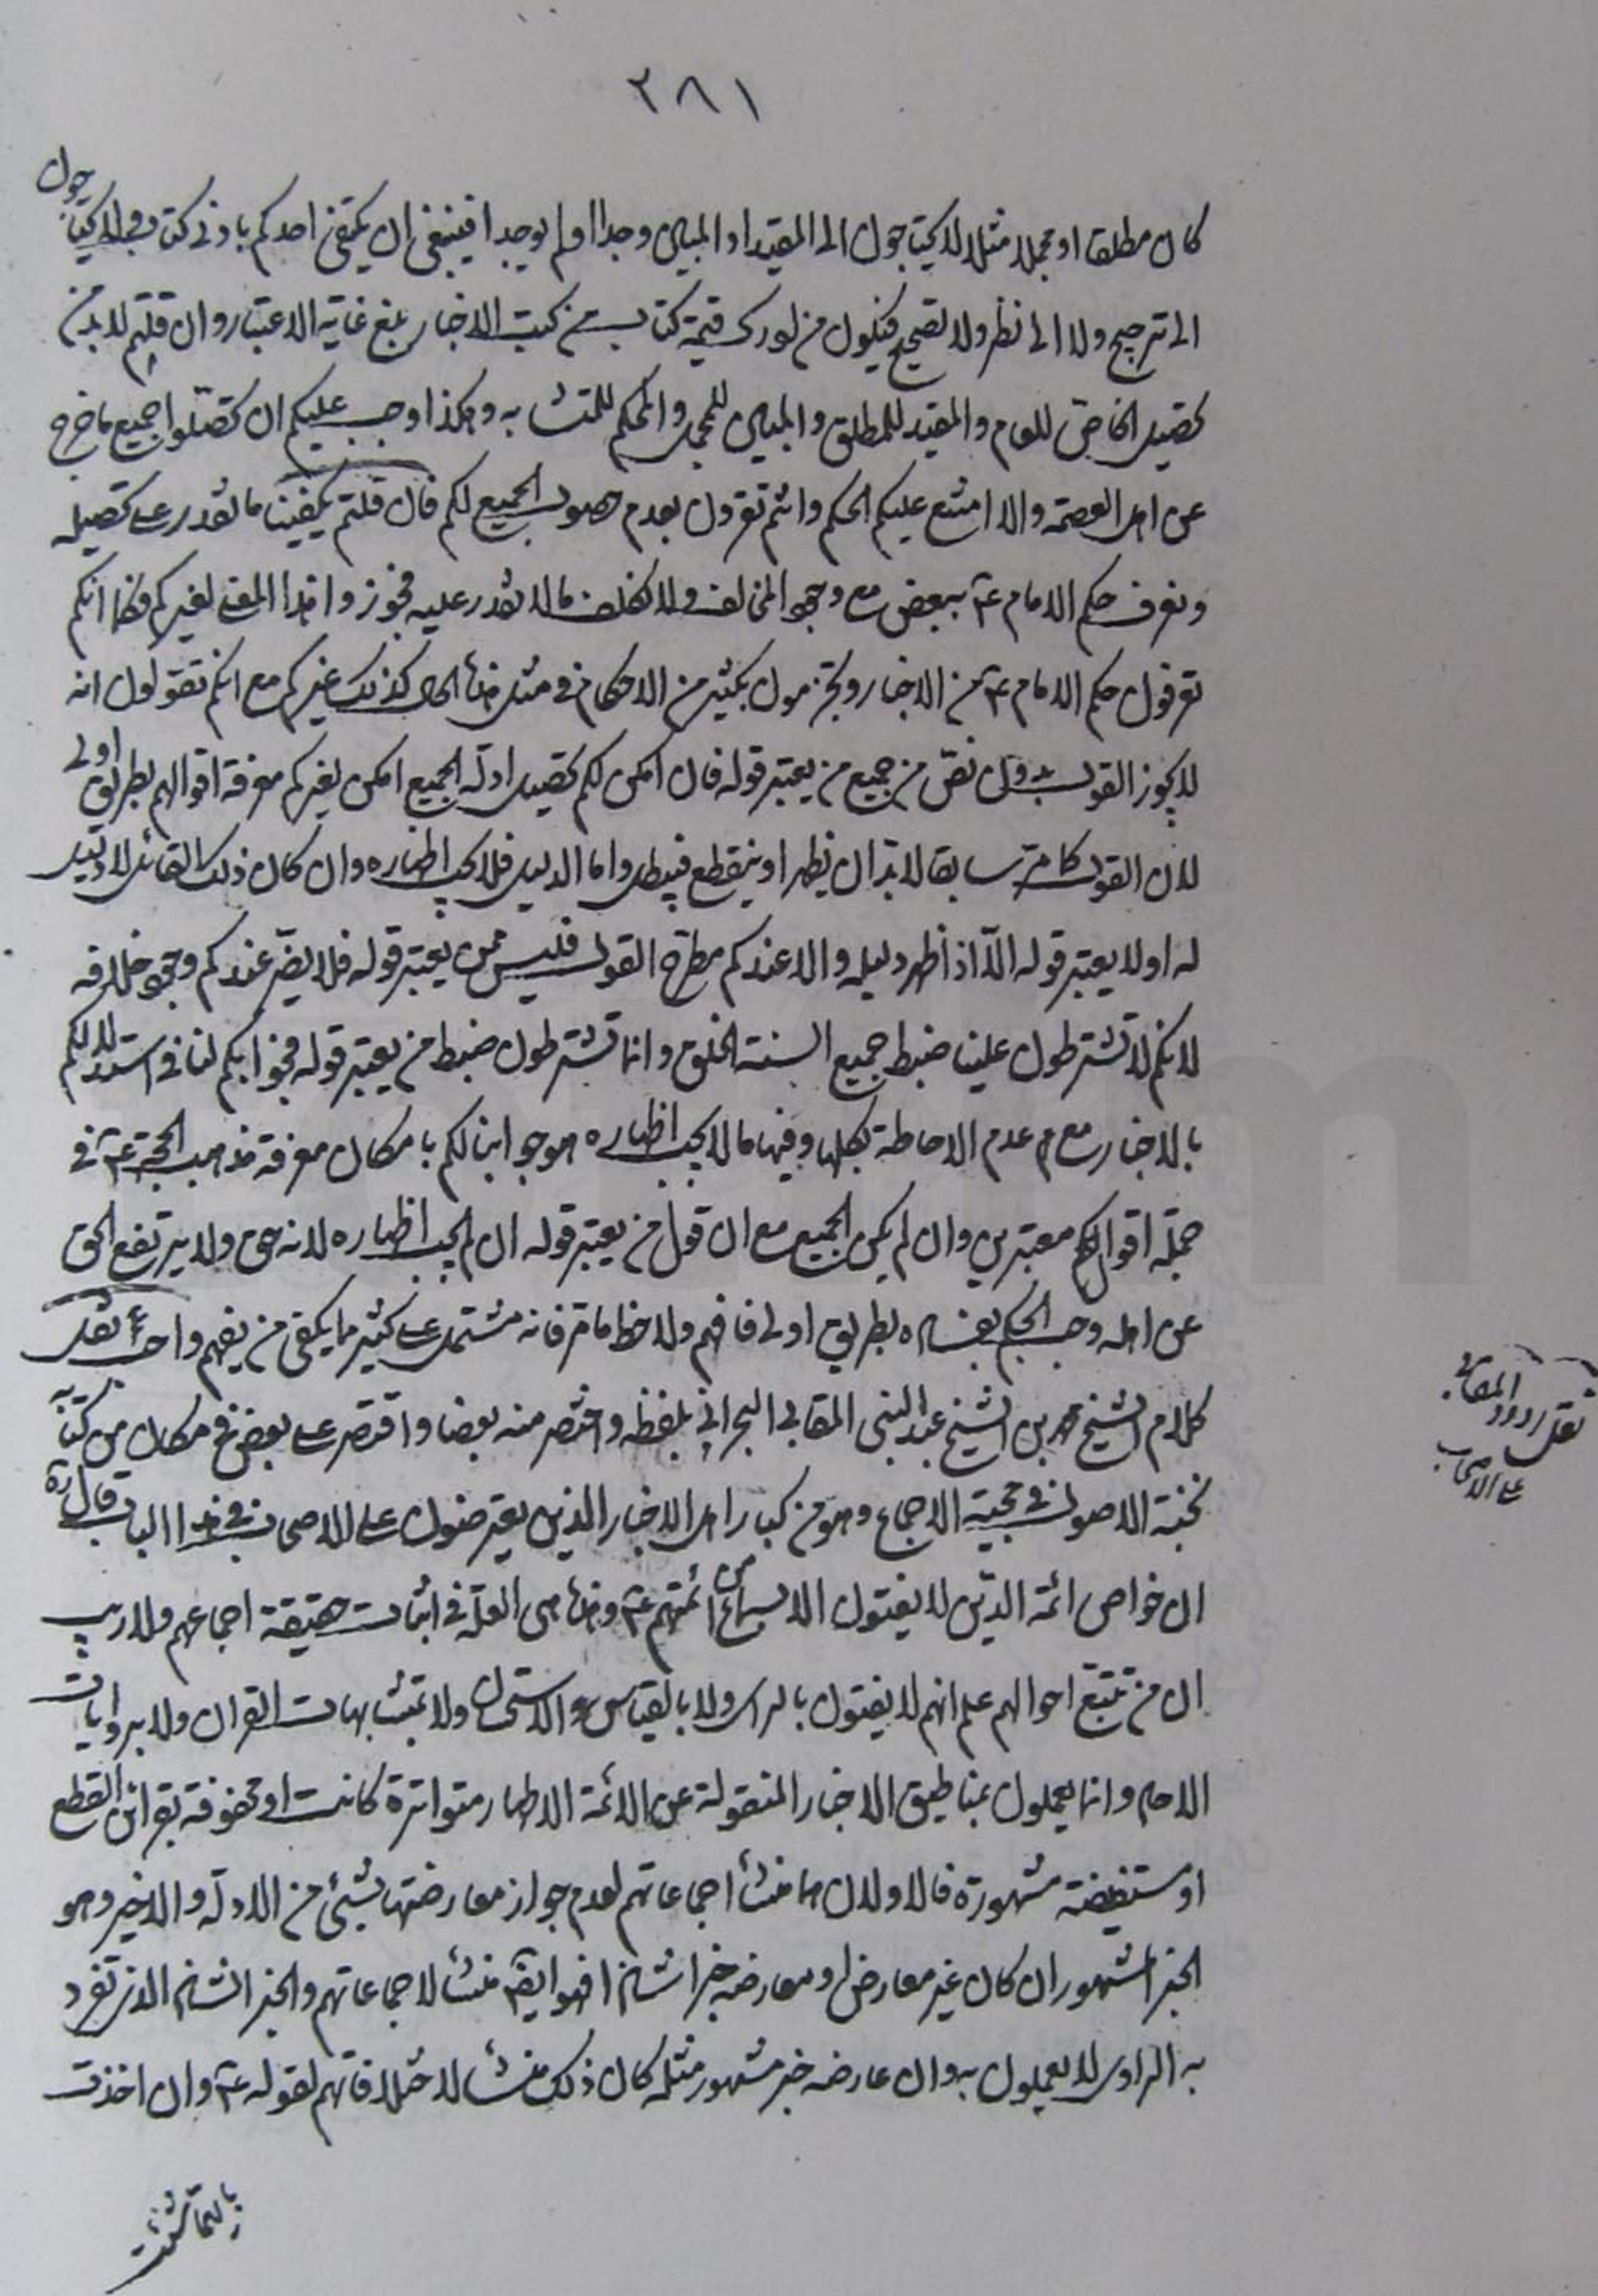 ٢٨١
كان مطلقا او مجملا مثلا لا يحتاجون الى المقيد او المبين وجدا او لم يوجدا فينبغى ان يكتفى احدكم بادنى كتاب ولا يحتاجون
الى ترجيح ولا الى نظر ولا تصحيح فيكون من لو ترك قيمة كتاب من كتب الاخبار بلغ غاية الاعتبار وان قلتم لا بد من
تحصيل الخاص للعام والمقيد للمطلق والمبين للمجمل والمحكم للمتشابه وهكذا وجب عليكم ان تحصّلوا جميع ما خرج
عن اهل العصمة والا امتنع عليكم الحكم وانتم تقرون بعدم حصول الجميع لكم فان قلتم يكفينا ما نقدر على تحصيله
ونعرف حكم الامام ع ببعض مع وجود المخالف ولا نكلف ما لا نقدر عليه فجوزوا هذا المعنى لغيركم فكما انكم
تعرفون حكم الامام ع من الاخبار وتجزمون بكثير من الاحكام فى مثل هذا الحال كذلك غيركم مع انكم تقولون انه
لا يجوز القول بدون نص من جميع من يعتبر قوله فان امكن لكم تحصيل ادلة الجميع امكن لغيركم معرفة اقوالهم بطريق اولى
لان القول كما مر سابقا لا بد ان يظهر او ينقطع فيبطل واما الدليل فلا يجب اظهاره وان كان ذلك القائل لا دليل
له او لا يعتبر قوله الّا اذ اظهر دليله والا عندكم مطرح القول فليس ممن يعتبر قوله فلا يضرّ عندكم وجود خلافه
لانكم لا تشترطون علينا ضبط جميع السنة الخلق وانما تشترطون ضبط من يعتبر قوله فجوابكم لنا فى استدلالكم
بالاخبار مع عدم الاحاطة بكلها وفيها ما لا يجب اظهاره هو جوابنا لكم بامكان معرفة مذهب الحجة ع فى
جملة اقوالكم معتبرين وان لم يكن الجميع مع ان قول من يعتبر قوله ان لم يجب اظهاره لانه حق ولا يرتفع الحق
عن اهله وجب الحكم بفساده بطريق اولى فافهم ولاحظ ما مر فانه مشتمل على كثير مما يكفى من يفهم واحببت نقل
كلام الشيخ محمد بن الشيخ عبد النبى المقابى البحرانى بلفظه واختصر منه بعضا واقتصر على بعض فى مكان من كتابه
نخبة الاصول فى حجية الاجماع وهو من كبار اهل الاخبار الذين يعترضون على الاصحاب فى هذا الباب قال ره
ان خواص ائمة الدين لا يفتون الا بسماع من ائمتهم ع وهذا هى العلة فى اثبات حقيقة اجماعهم ولا ريب
ان من تتبع احوالهم علم انهم لا يفتون بالراى ولا بالقياس والاستحسان ولا بمتشابهات القران ولا بروايات
الاحاد وانما يعملون بمناطيق الاخبار المنقولة عن الائمة الاطهار متواترة كانت او محفوفة بقرائن القطع
او مستفيضة مشهورة فالاولان هما منشأ اجماعاتهم لعدم جواز معارضتها بشئ من الادلة والاخير وهو
الخبر المشهور ان كان غير معارض او معارضه خبرا شاذا فهو ايضا منشأ لاجماعاتهم والخبر الشاذ الذى تفرد
به الراوى لا يعملون به وان عارضه خبر مشهور مثله كان ذلك منشأ لاختلافاتهم لقوله ع وان اخذت
نقل ردود المقابى
على الاصحاب